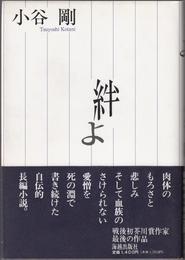 小谷 剛
Tsuyoshi Kotani
絆よ
肉体の
もろさと
悲しみ
そして血族の
さけられない
愛憎を
死の淵で
書き続けた
自伝的
長編小説。
戦後初芥川賞作家
最後の作品
海越出版社